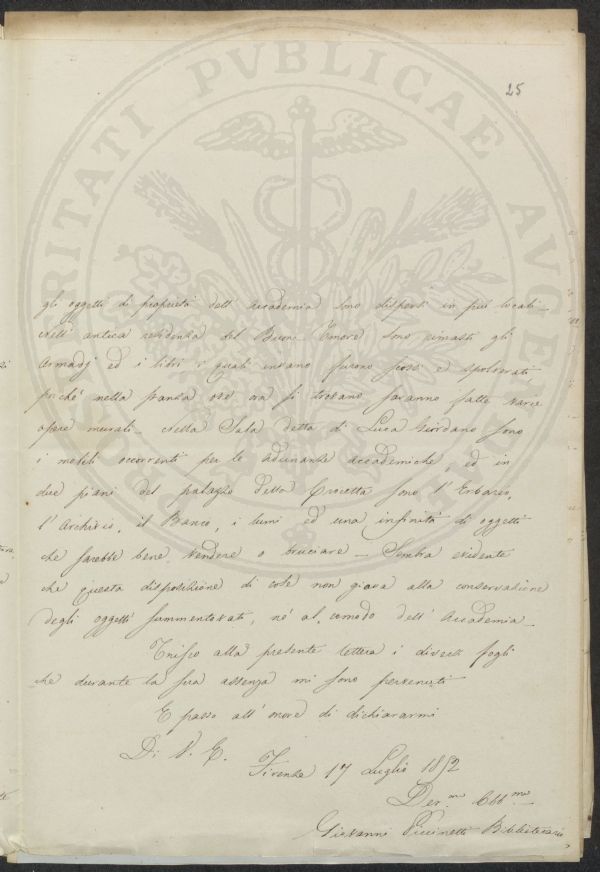 25
gli oggetti di proprietà dell' Accademia sono dispersi in più locali_
Nell' antica residenza del Buon Umore sono rimasti gli
Armadj ed i libri i quali furono scossi ed spolverati
poiché nella stanza ove ora si trovano saranno fatte varie
opere murali_ Nella Sala detta di Luca Giordano sono
i mobili occorrenti per le adunanze accademiche, ed in
due piani del palazzo della Crocetta sono l'Erbario,
l'Archivio, il Banco, i lumi ed una infinità di oggetti
che sarebbe bene vendere o bruciare_ Sembra evidente
che questa disposizione di cose non giova alla conservazione
degli oggetti summentovati, né al comodo dell' Accademia_
Unisco alla presente lettera i diversi fogli
che durante la sua assenza mi sono pervenuti
E passo all' onore di dichiararmi
Di V. E.
Firenze 17 Luglio 1852
Dev.mo Obb.mo
Giovanni Piccinetti Bibliotecario
PVBLICAE